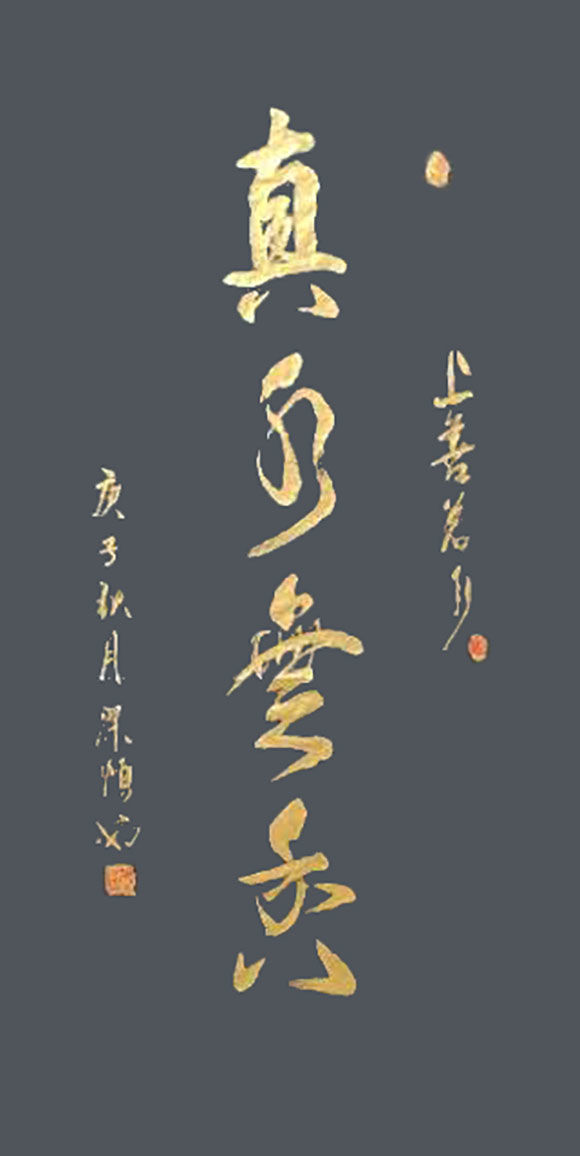 上善若水
真水無香
庚子秋月